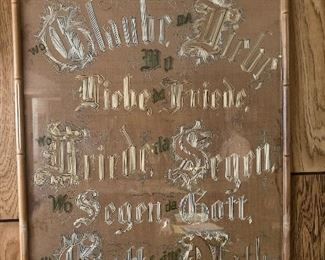 Wo Glaube da Liebe,
Wo Liebe da Friede,
Wo Friede, da Segen,
Wo Segen da Gott,
Wo Gott keine Noth